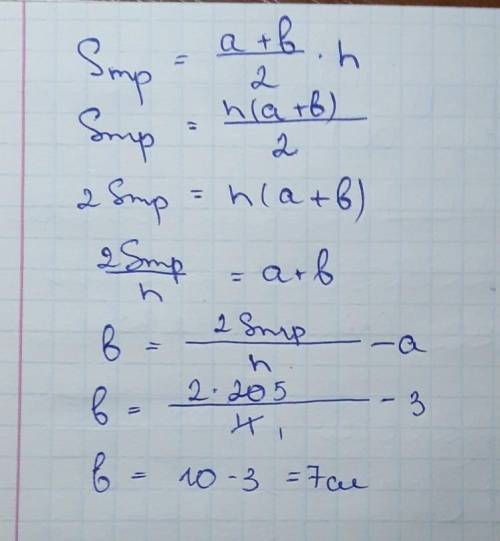 Sтр = a + b / 2 · h
Sтр = h(a + b) / 2
2Sтр = h(a + b)
2Sтр / h = a + b
b = 2Sтр / h - a
b = 2 · 20 5 / 4 1 - 3
b = 10 - 3 = 7см